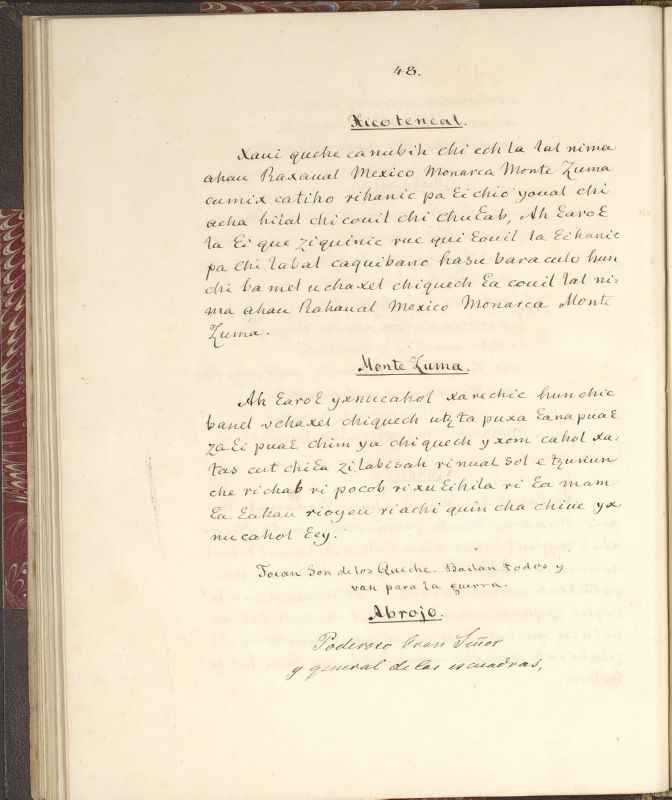 48.
Xicotencal.
Xaui queche canubih chi ech la lal nima
ahau Raxaual Mexico Monarca Monte Zuma
cumix catiho rihanic pa Ɛi chio youal chi
acha hilal chi couil chi chuƐab, Ah ƐaroƐ
la Ɛi que ziquinic ruc qui Ɛouil la Ɛikanic
pa chi labal caquibano hasu bara culo hun
chi bamel uchaxel chiquech Ɛa couil lal ni-
ma ahau Rahaual Mexico Monarca Monte
Zuma.
Monte Zuma.
Ah ƐaroƐ yxnucahol xarechic hun chic
banel vchaxel chiquech utzta puxa Ɛana puaƐ
zaƐi puaƐ chim ya chiquech yxom cahol xa-
tas cut chiƐa zilabisah rinual sol e tzuriun
che richab ri pocob rixuƐihila ri Ɛa mam
Ɛa Ɛakau rioyeu riachi quin cha chiue yx
nucahol Ɛey.
Tocan Son de los Quiche. Bailan todos y
van para la guerra.
Abrojo.
Poderoso Gran Señor
y general de las escuadras,